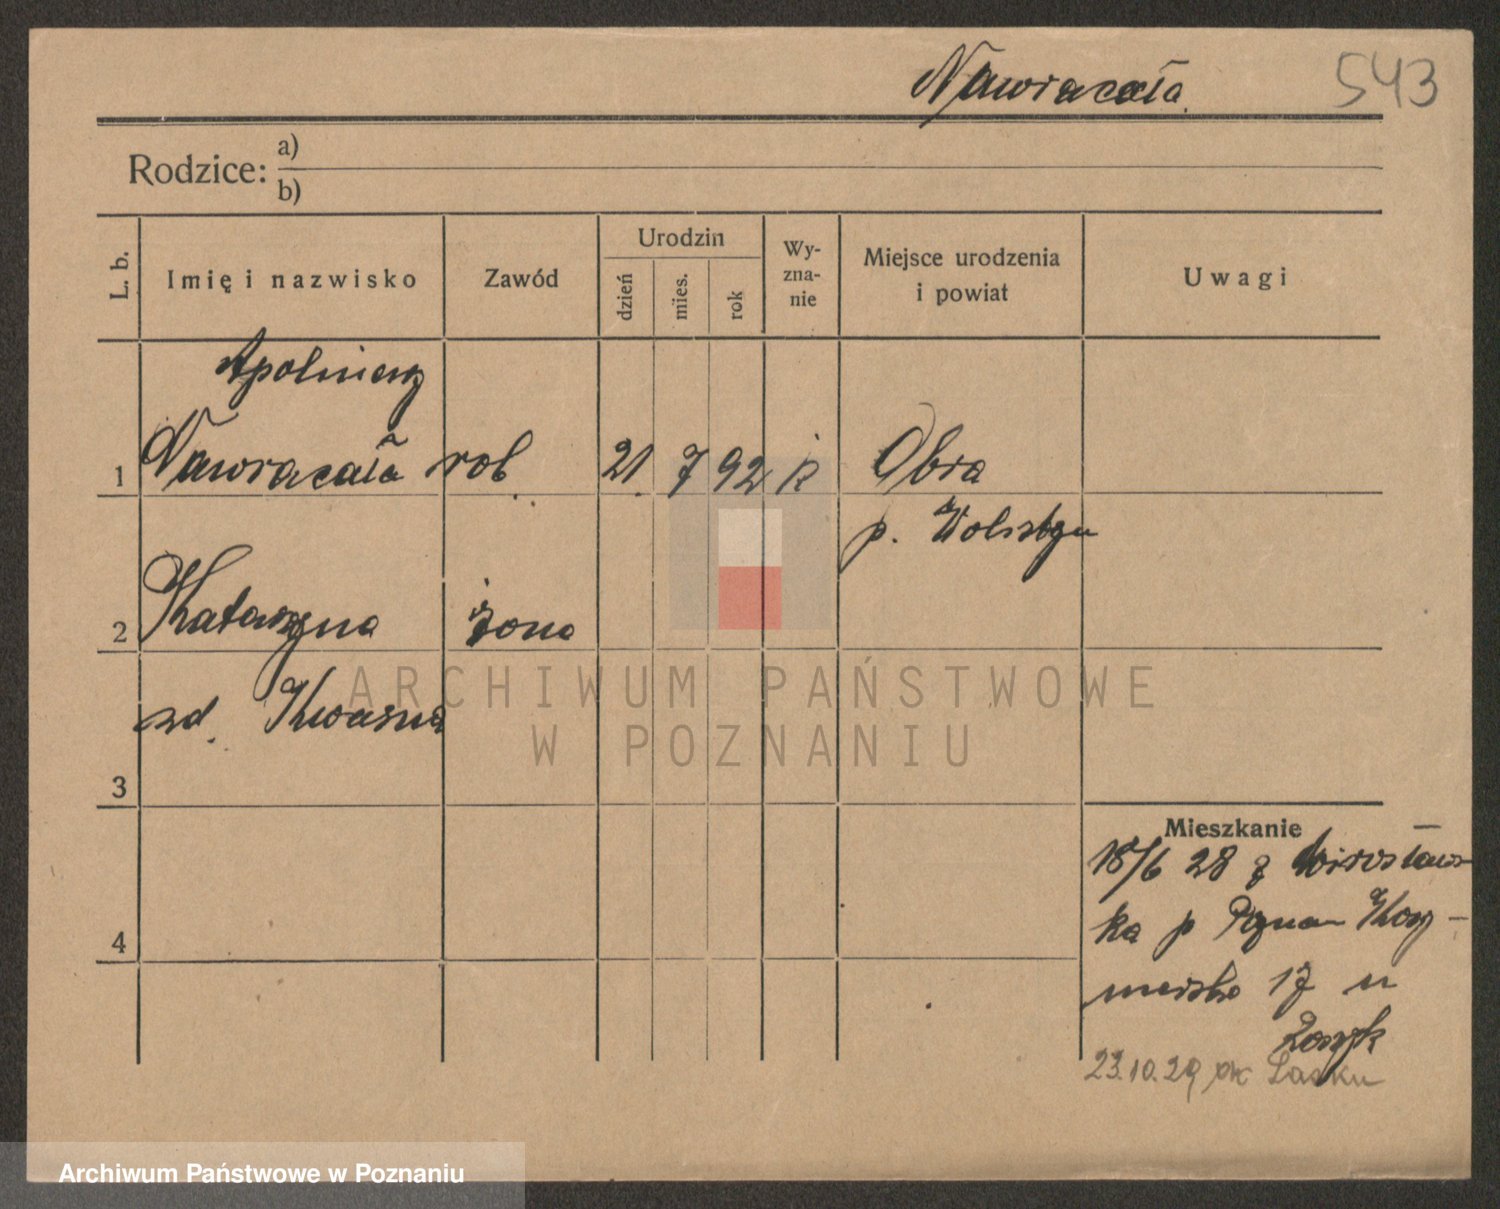 Nawracała 543
Rodzice: a)
b)
L. b. Imię i nazwisko Zawód Urodzin dzień mies. rok Wy-zna-nie Miejsce urodzenia i powiat Uwagi
Apolinary
1 Nawracała rob. 21. 7 92 k Obra
p. Wolsztyn
2 Katarzyna żona
zd. Kwaśna
3
Mieszkanie
18/6 28 z
ka p
4
17 u
23.10.29 Lasku
ARCHIWUM PAŃSTWOWE
W POZNANIU
Archiwum Państwowe w Poznaniu